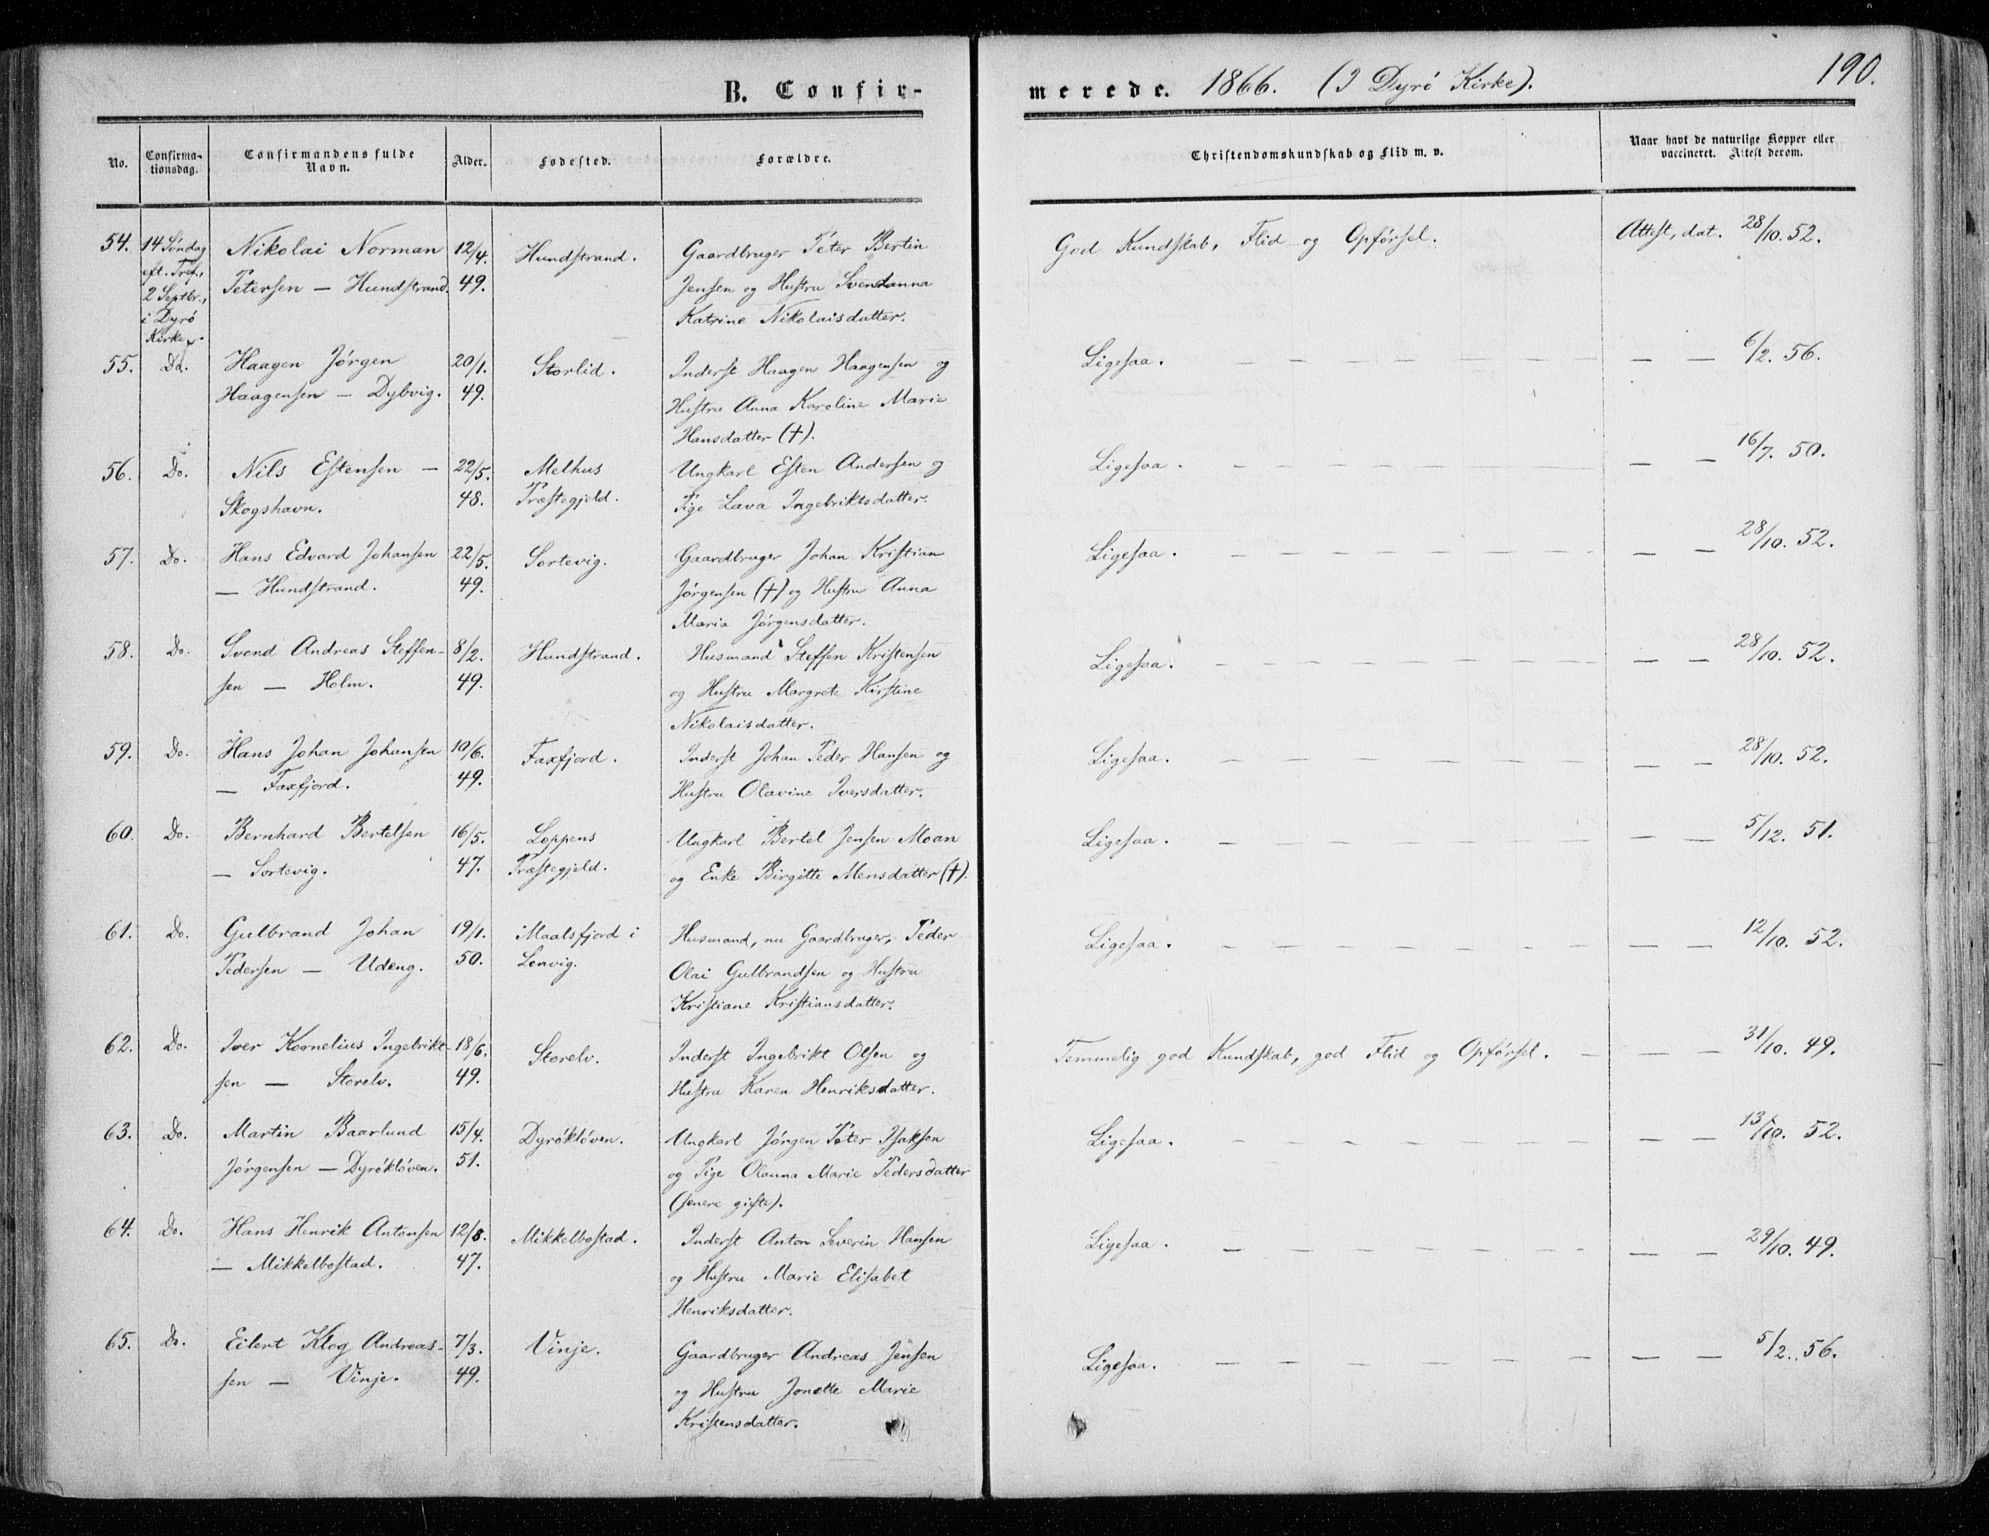 B. Confir-
merede. 1866. (I Dyrö Kirke).
190.
No.
Confirma-
tionsdag.
Confirmandens fulde
Navn.
Alder.
Fødested.
Forældre.
Christendomskundskab og Flid m. v.
Naar havt de naturlige Kopper eller
vaccineret. Attest derom.
54. 14 Söndag Nikolai Norman 12/4. Hundstrand. Gaardbruger Peter Bertin God Kundskab, Flid og Opförsel. Attest, dat. 28/10. 52.
eft. Tref., Petersen — Hundstrand. 49. Jensen og Hustru Svendanna
2 Septbr., Katrine Nikolaisdatter.
i Dyrö
Kirke.
55. Do. Haagen Jörgen 20/1. Storlid. Inderst Haagen Haagensen og Ligesaa. — — 6/2. 56.
Haagensen — Dybvig. 49. Hustru Anna Karoline Marie
Hansdatter (†).
56. Do. Nils Estensen — 22/5. Melhus Ungkarl Esten Andersen og Ligesaa. — — 16/7. 50.
Skogshavn. 48. Præstegjeld. Pige Lava Ingebriktsdatter.
57. Do. Hans Edvard Johansen 22/5. Sortevig. Gaardbruger Johan Kristian Ligesaa. — — 28/10. 52.
— Hundstrand. 49. Jörgensen (†) og Hustru Anna
Maria Jörgensdatter.
58. Do. Svend Andreas Steffen- 8/2. Hundstrand. Husmand Steffen Kristensen Ligesaa. — — 28/10. 52.
sen — Holm. 49. og Hustru Margrete Kirstine
Nikolaisdatter.
59. Do. Hans Johan Johansen 10/6. Faxfjord. Inderst Johan Peder Hansen og Ligesaa. — — 28/10. 52.
— Faxfjord. 49. Hustru Olavine Iversdatter.
60. Do. Bernhard Bertelsen 16/5. Loppens Ungkarl Bertel Jensen Moan Ligesaa. — — 5/12. 51.
— Sortevig. 47. Præstegjeld. og Enke Birgitte Mensdatter (†).
61. Do. Gulbrand Johan 19/1. Maalsfjord i Husmand, nu Gaardbruger, Peder Ligesaa. — — 12/10. 52.
Pedersen — Udeng. 50. Lenvig. Olai Gulbrandsen og Hustru
Kristiane Kristiansdatter.
62. Do. Iver Kornelius Ingebrikt- 18/6. Storelv. Inderst Ingebrikt Olsen og Temmelig god Kundskab, god Flid og Opförsel. — — 31/10. 49.
sen — Storelv. 49. Hustru Karen Henriksdatter.
63. Do. Martin Baarlund 15/4. Dyröklöven. Ungkarl Jörgen Peter Isaksen Ligesaa. — — 13/10. 52.
Jörgensen — Dyröklöven. 51. og Pige Olanna Marie Pedersdatter
(senere gifte).
64. Do. Hans Henrik Antonsen 12/8. Mikkelbostad. Inderst Anton Severin Hansen Ligesaa. — — 29/10. 49.
— Mikkelbostad. 47. og Hustru Marie Elisabet
Henriksdatter.
65. Do. Eilert Klog Andreas- 7/3. Vinje. Gaardbruger Andreas Jensen Ligesaa. — — 5/2. 56.
sen — Vinje. 49. og Hustru Jonette Marie
Kristensdatter.